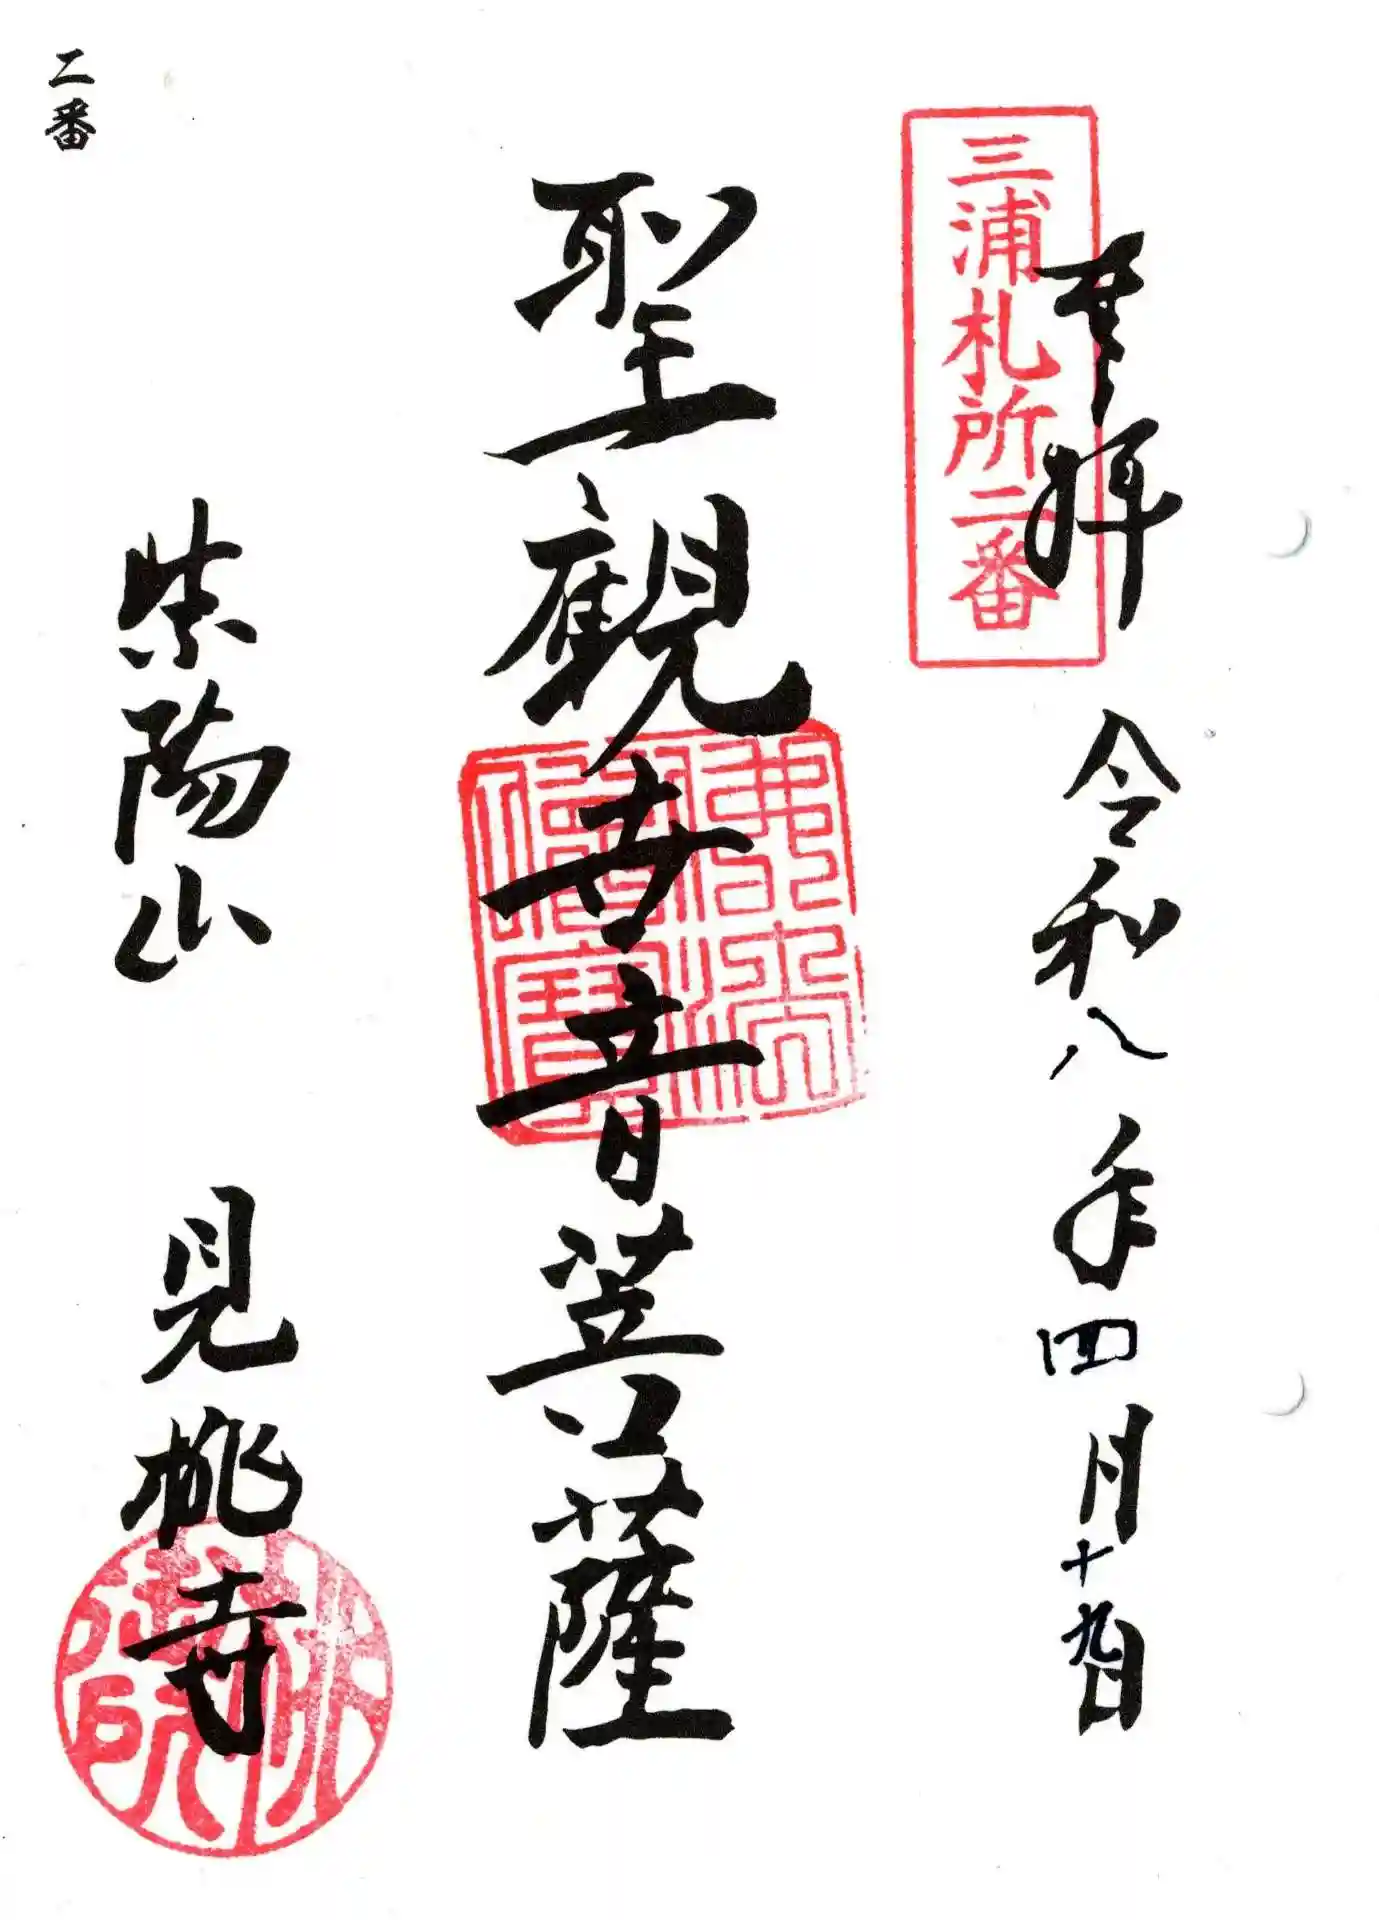 奉拝
令和八年四月十九日
三浦札所二番
聖観世音菩薩
佛法僧寶
紫陽山 見桃寺
二番